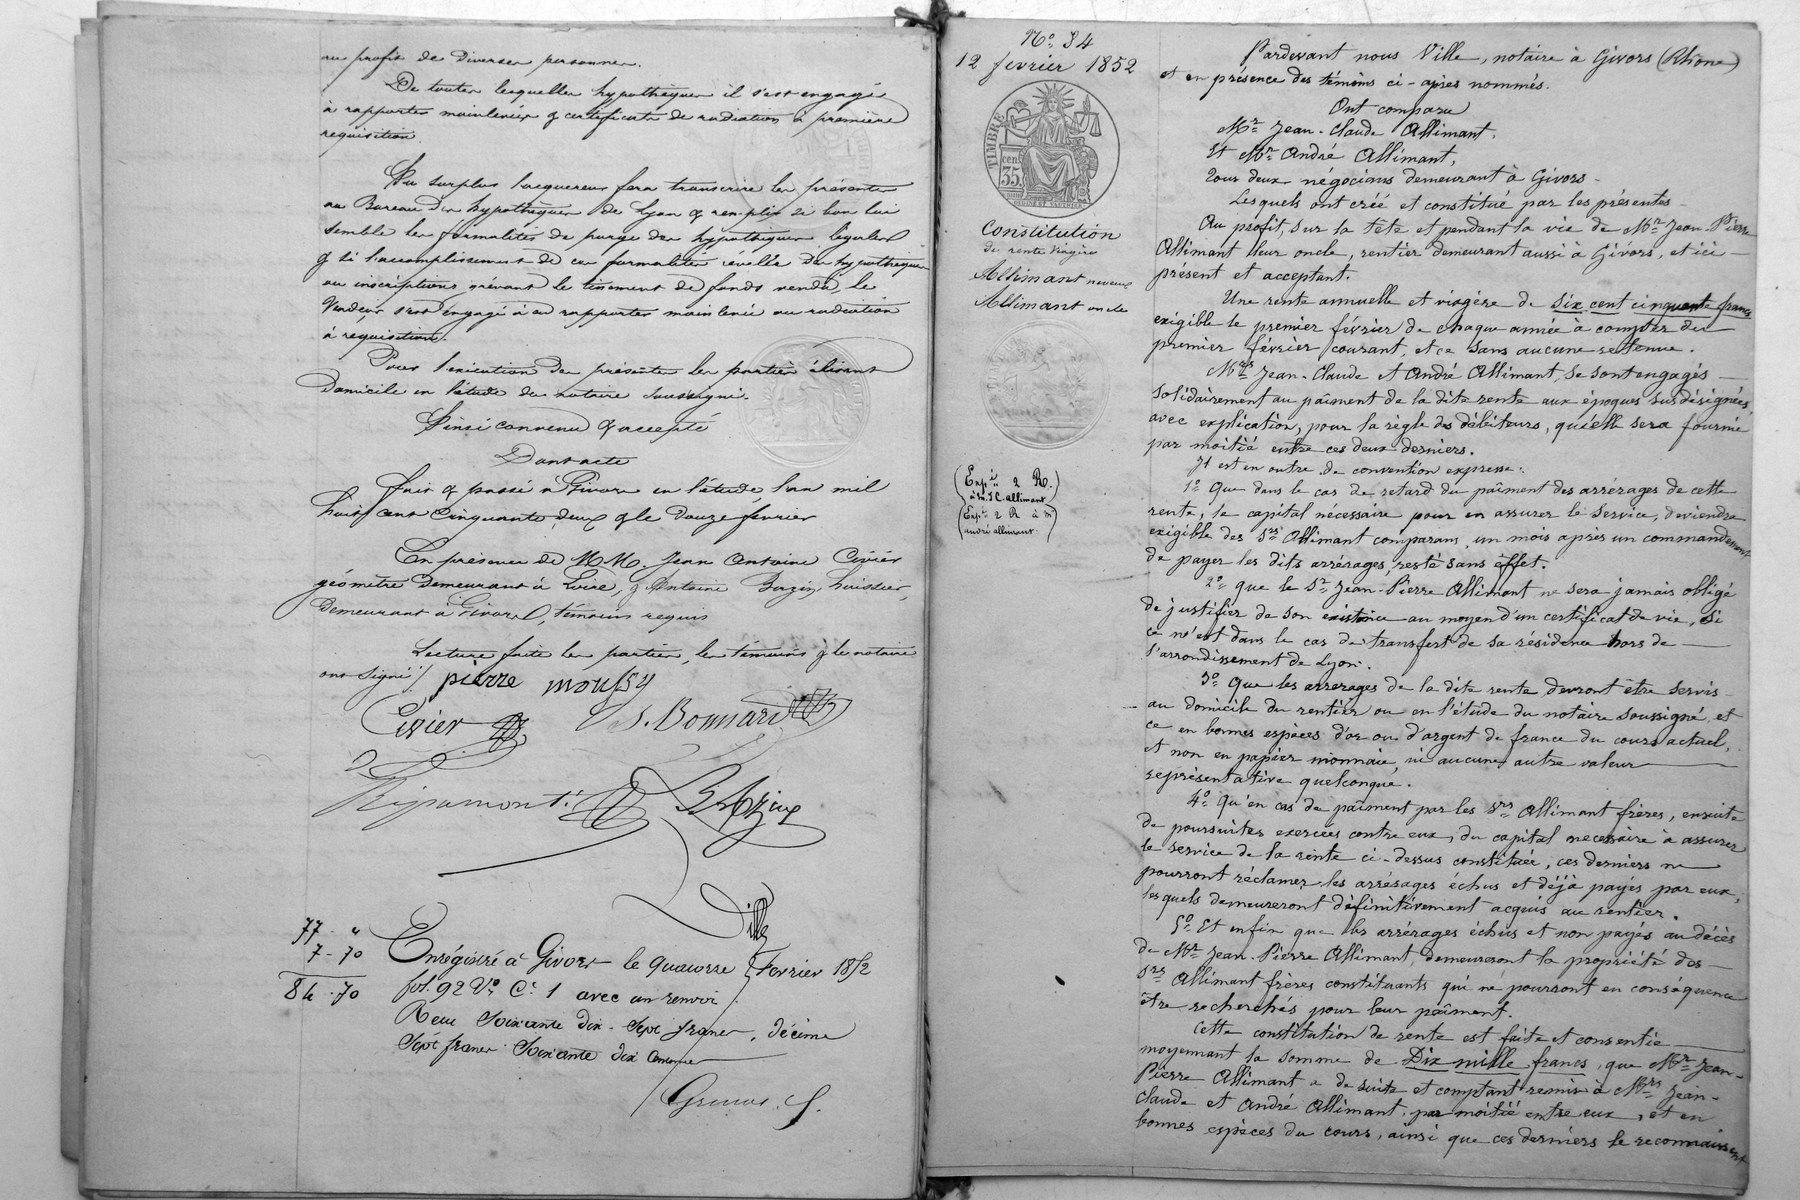 au profit de diverses personnes.
De toutes lesquelles hypothèques il s'est engagé
à rapporter mainlevées & certificats de radiation à première
réquisition.
Au surplus l'acquereur fera transcrire les présentes
au Bureau des hypothèques de Lyon & remplir si bon lui
semble les formalités de purge des hypothèques légales
& si l'accomplissement de ces formalités révèlle des hypothèques
ou inscriptions grévant le tinement de fonds vendu, le
Vendeur s'est engagé à en rapporter mainlevée ou radiation
à réquisition.
Pour l'exécution des présentes les parties élisent
domicile en l'étude du notaire soussigné.
Ainsi convenu & accepté
Dont acte
Fait & passé à Givors en l'étude, l'an mil
huit cent cinquante deux & le douze février
En présence de MM. Jean Antoine Civier
géomètre demeurant à Loire, & Antoine Bazin, huissier,
demeurant à Givors, témoins requis
Lecture faite les parties, les témoins & le notaire
ont signé /. pierre moussy
Civier S. Bonnard
Ripamonti Bazin
Ville
77 - "
7 - 70
84 - 70
Enrégistré à Givors le quatorze Février 1852
fol. 92 Vo C. 1 avec un renvoi
Reçu soixante dix-sept francs, décime
sept francs soixante dix centimes
No 34
12 février 1852
TIMBRE
cen.
35
Constitution
de rente Viagère
Allimant neveux
Allimant oncle
(Expé. 2 R.
à m. J.C. Allimant)
(Expé. 2 R à mr
andré allimant.)
Pardevant nous Ville, notaire à Givors (Rhône)
et en présence des témoins ci-après nommés.
Ont comparu
Mr. Jean-Claude Allimant,
Et Mr. André Allimant,
Tous deux négocians demeurant à Givors -
Lesquels ont créé et constitué par les présentes -
Au profit, sur la tête et pendant la vie de Mr. Jean-Pierre
Allimant leur oncle, rentier demeurant aussi à Givors, et ici -
présent et acceptant.
Une rente annuelle et viagère de six cent cinquante francs
exigible le premier février de chaque année à compter du
premier février courant, et ce sans aucune retenue.
Mrs. Jean-Claude et André Allimant, se sont engagés -
solidairement au paîment de la dite rente aux époques susdésignées,
avec explication, pour la règle des débiteurs, qu'elle sera fournie
par moitié entre ces deux derniers.
Il est en outre de convention expresse:
1o. Que dans le cas de retard du paîment des arrérages de cette
rente, le capital nécessaire pour en assurer le service, deviendra
exigible des Srs. Allimant comparans, un mois après un commandement
de payer les dits arrérages, resté sans effet.
2o. que le Sr. Jean-Pierre Allimant ne sera jamais obligé
de justifier de son existence au moyen d'un certificat de vie, si
ce n'est dans le cas de transfert de sa résidence hors de -
l'arrondissement de Lyon.
3o. Que les arrerages de la dite rente devront être servis -
au domicile du rentier ou en l'étude du notaire soussigné, et
ce en bonnes espèces d'or ou d'argent de france du cours actuel,
et non en papier monnaie, ni aucune autre valeur
représentative quelconque.
4o. Qu'en cas de paîment par les Srs Allimant frères, ensuite
de poursuites exercées contre eux, du capital necessaire à assurer
le service de la rente ci-dessus constituée, ces derniers ne
pourront réclamer les arrérages échus et déjà payés par eux,
lesquels demeureront définitivement acquis au rentier.
5o. Et enfin que les arrérages échus et non payés au décès
de Mr. Jean-Pierre Allimant, demeureront la propriété des -
Srs Allimant frères constituants qui ne pourront en conséquence
être recherchés pour leur paîment.
Cette constitution de rente est faite et consentie
moyennant la somme de Dix mille francs, que Mr. Jean-
Pierre Allimant a de suite et comptant remis à Mrs. Jean-
Claude et André Allimant, par moitié entre eux, et en
bonnes espèces du cours, ainsi que ces derniers le reconnaissent